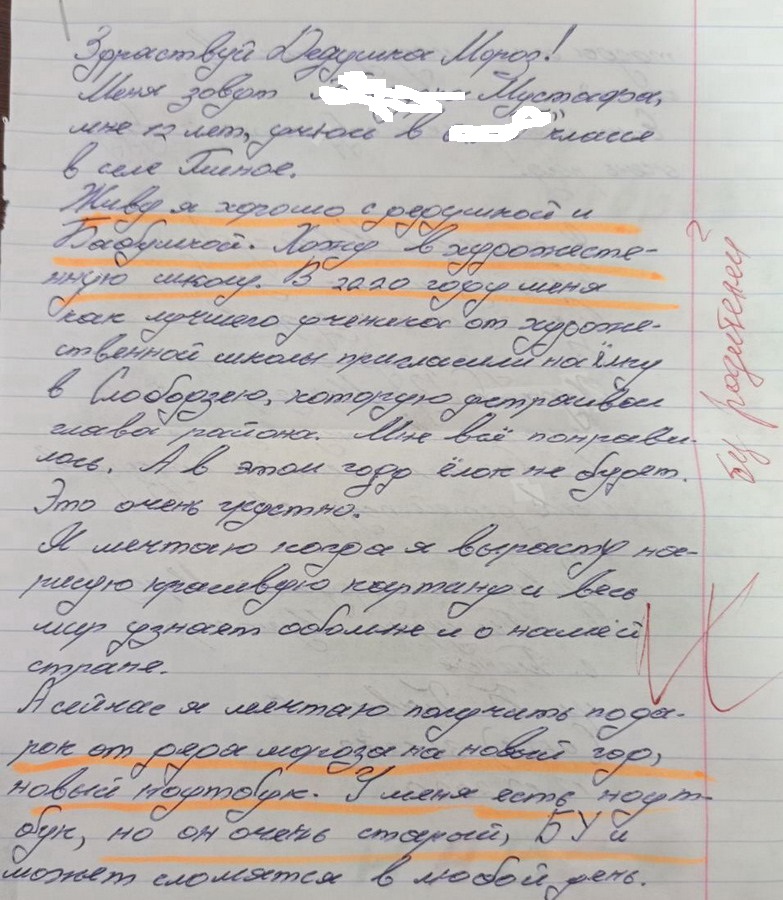 Здраствуй Дедушка Мороз!
Меня зовут Мустафа,
мне 12 лет, учюсь в классе
в селе
Живу я хорошо с дедушкой и
Бабушкой. Хожу в художестве-
нную школу. В 2020 году меня
как лучшего ученика от художе-
ственной школы пригласили на ёлку
в Слободзею, которую устраивал
глава района. Мне всё понрави-
лось. А в этом году ёлок не будет.
Это очень грустно.
Я мечтаю когда я вырасту на-
рисую красивую картину и весь
мир узнает обо мне и о нашей
стране.
А сейчас я мечтаю получить пода-
рок от деда мороза на новый год,
новый ноутбук. У меня есть ноут-
бук, но он очень старый, БУ и
может сломятся в любой день.
бу родителей?